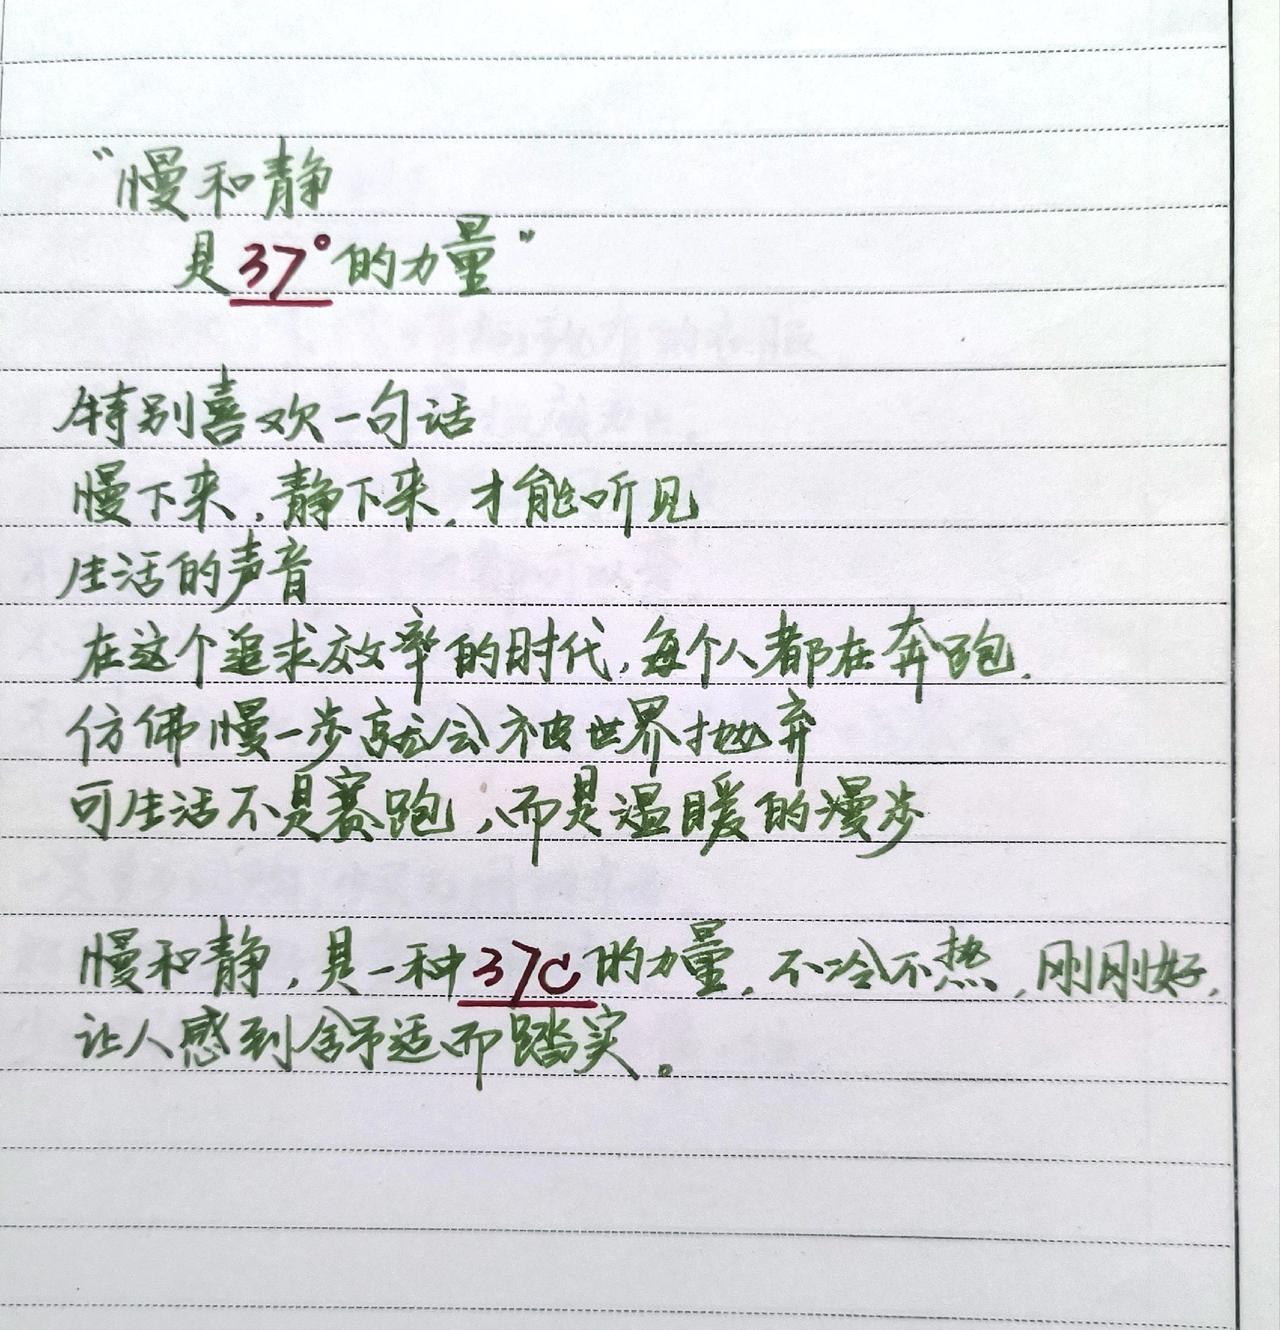 “慢和静
是37°的力量”
特别喜欢一句话
慢下来，静下来，才能听见
生活的声音
在这个追求效率的时代，每个人都在奔跑.
仿佛慢一步就会被世界抛弃
可生活不是赛跑，而是温暖的漫步
慢和静，是一种37C的力量，不冷不热，刚刚好，
让人感到舒适而踏实。